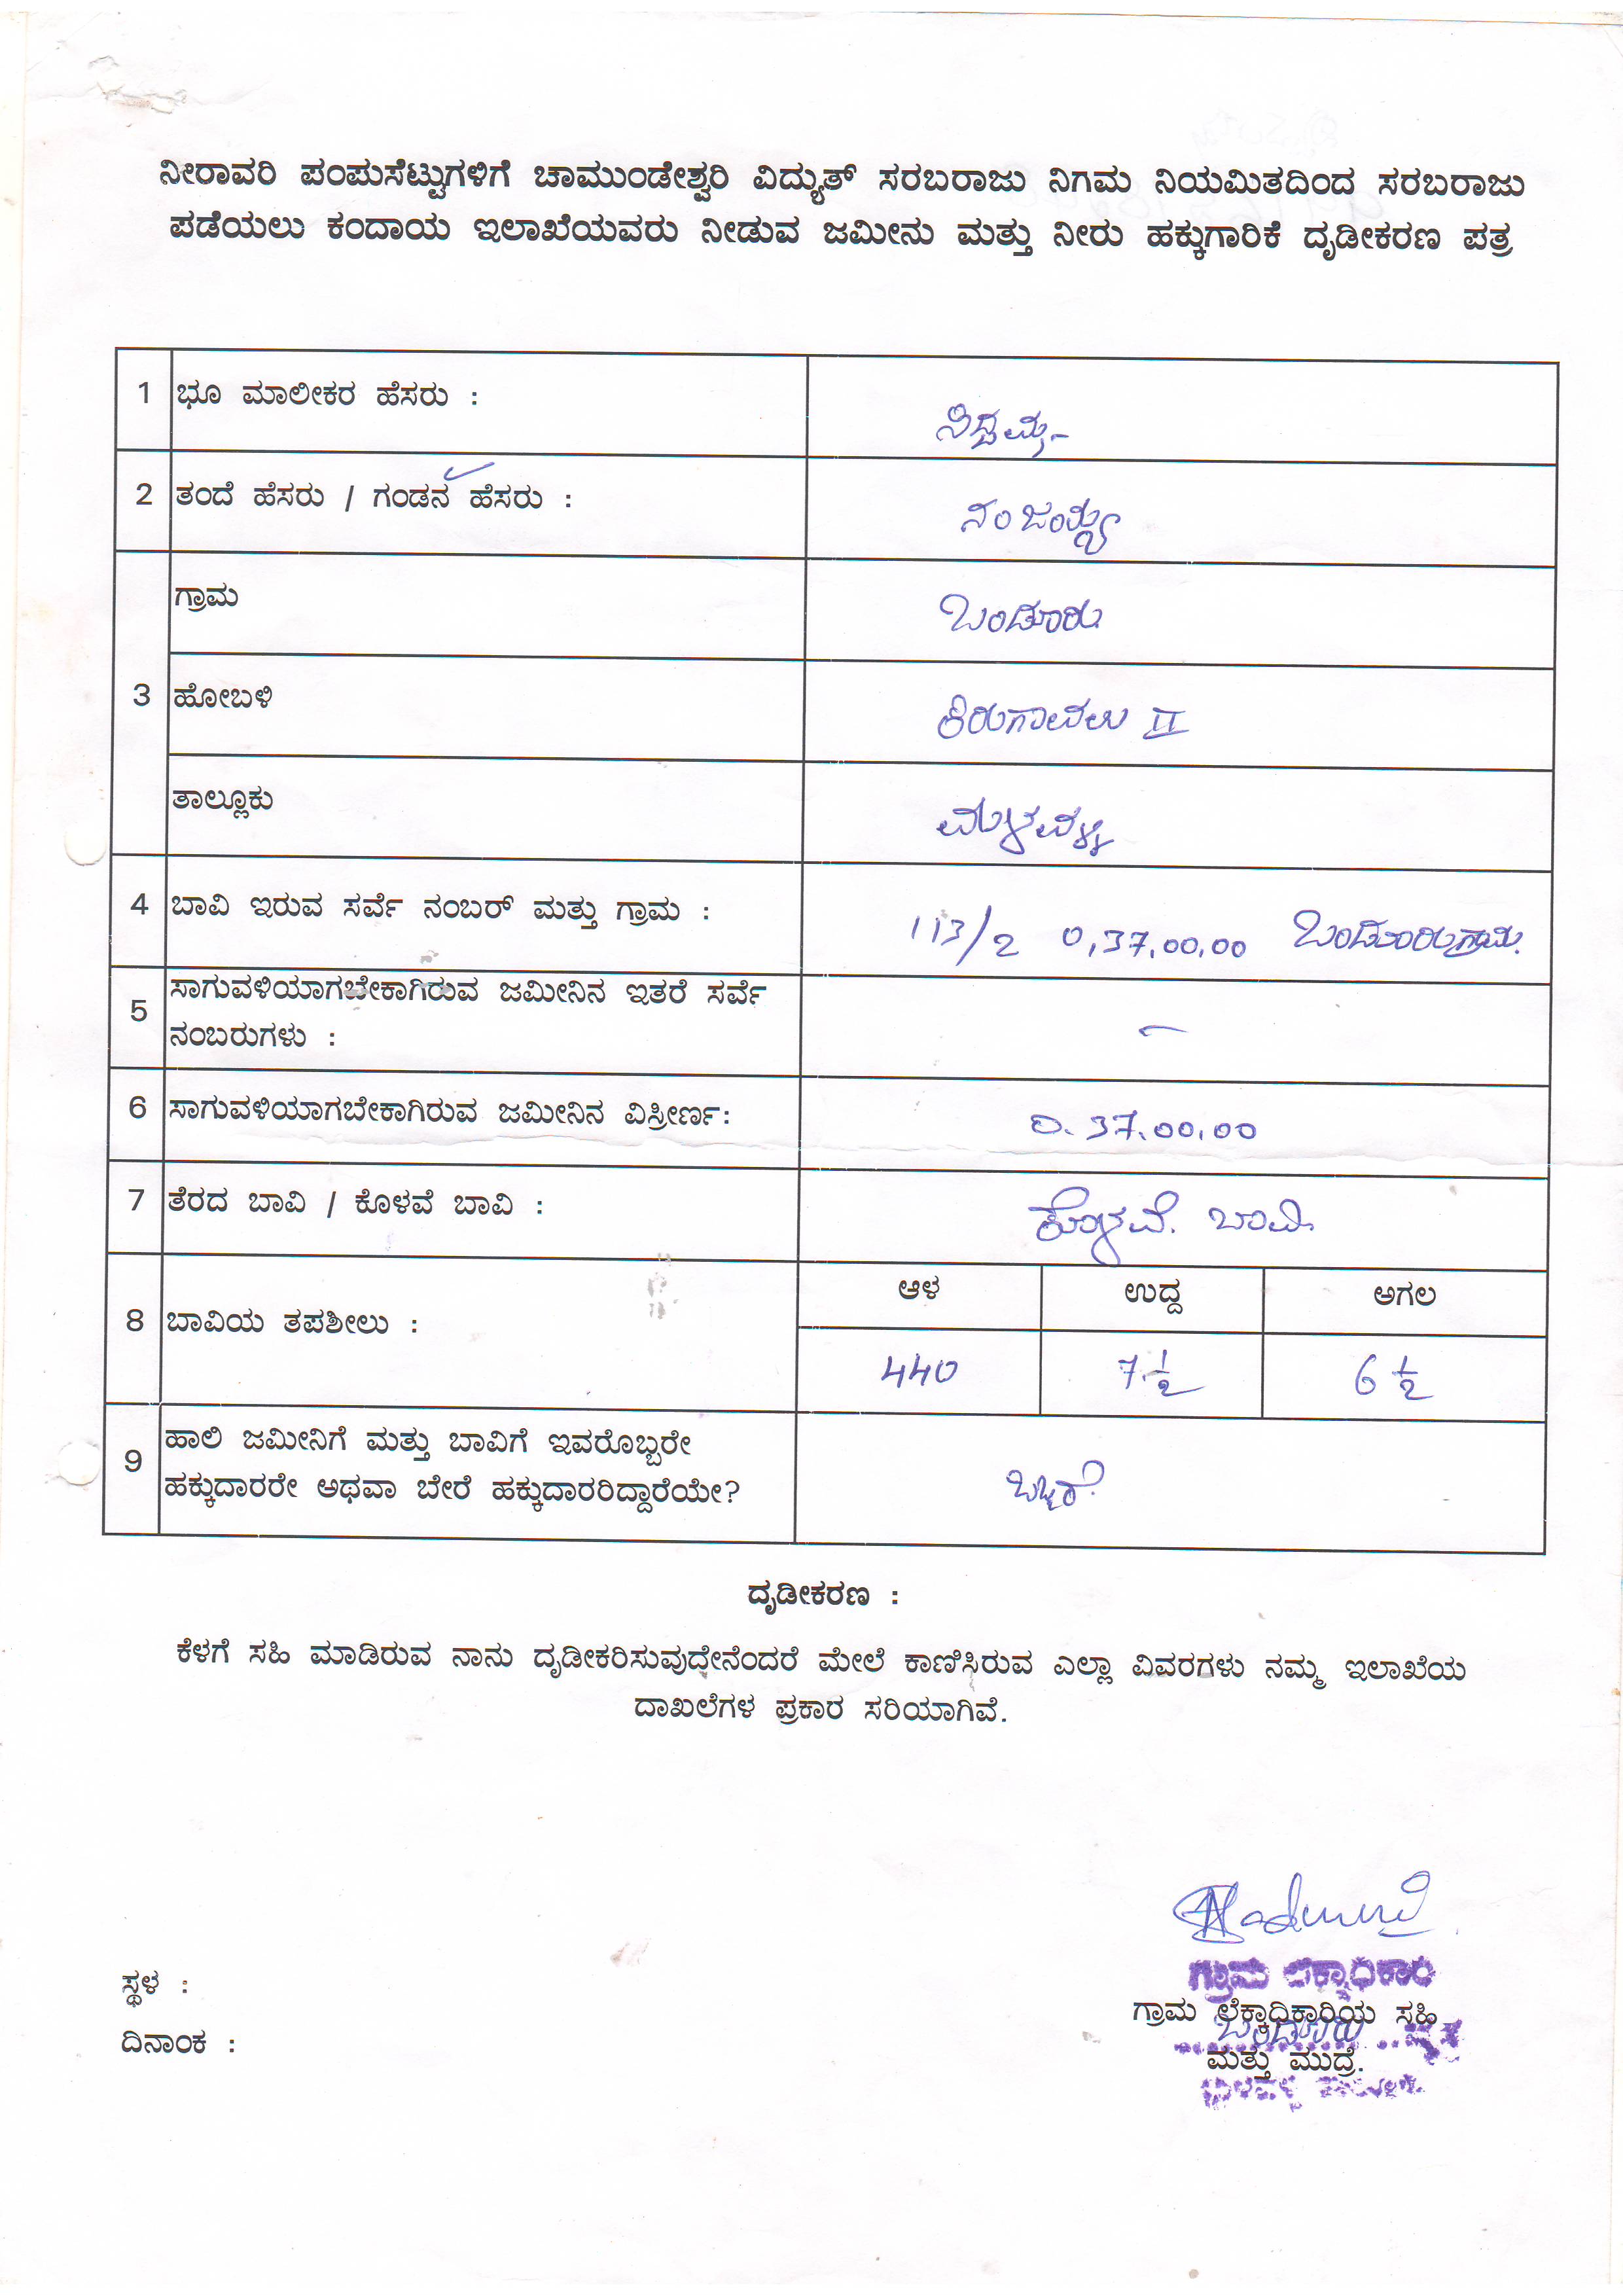 ನೀರಾವರಿ ಪಂಪುಸೆಟ್ಟುಗಳಿಗೆ ಚಾಮುಂಡೇಶ್ವರಿ ವಿದ್ಯುತ್ ಸರಬರಾಜು ನಿಗಮ ನಿಯಮಿತದಿಂದ ಸರಬರಾಜು
ಪಡೆಯಲು ಕಂದಾಯ ಇಲಾಖೆಯವರು ನೀಡುವ ಜಮೀನು ಮತ್ತು ನೀರು ಹಕ್ಕುಗಾರಿಕೆ ದೃಡೀಕರಣ ಪತ್ರ
1 ಭೂ ಮಾಲೀಕರ ಹೆಸರು :
2 ತಂದೆ ಹೆಸರು / ಗಂಡನ ಹೆಸರು : ನಂಜಯ್ಯ
3
ಗ್ರಾಮ ಬಂಡೂರು
ಹೋಬಳಿ ಕಿರುಗಾವಲು II
ತಾಲ್ಲೂಕು ಮಳವಳ್ಳಿ
4 ಬಾವಿ ಇರುವ ಸರ್ವೆ ನಂಬರ್ ಮತ್ತು ಗ್ರಾಮ : 113/2 0.37.00.00 ಬಂಡೂರು ಗ್ರಾಮ.
5 ಸಾಗುವಳಿಯಾಗಬೇಕಾಗಿರುವ ಜಮೀನಿನ ಇತರೆ ಸರ್ವೆ
ನಂಬರುಗಳು : –
6 ಸಾಗುವಳಿಯಾಗಬೇಕಾಗಿರುವ ಜಮೀನಿನ ವಿಸ್ತೀರ್ಣ: 0.37.00.00
7 ತೆರದ ಬಾವಿ / ಕೊಳವೆ ಬಾವಿ : ಕೊಳವೆ. ಬಾವಿ.
ಆಳ ಉದ್ದ ಅಗಲ
8 ಬಾವಿಯ ತಪಶೀಲು :
440 7 1/2 6 1/2
9 ಹಾಲಿ ಜಮೀನಿಗೆ ಮತ್ತು ಬಾವಿಗೆ ಇವರೊಬ್ಬರೇ
ಹಕ್ಕುದಾರರೇ ಅಥವಾ ಬೇರೆ ಹಕ್ಕುದಾರರಿದ್ದಾರೆಯೇ? ಒಬ್ಬರೆ.
ದೃಡೀಕರಣ :
ಕೆಳಗೆ ಸಹಿ ಮಾಡಿರುವ ನಾನು ದೃಡೀಕರಿಸುವುದೇನೆಂದರೆ ಮೇಲೆ ಕಾಣಿಸಿರುವ ಎಲ್ಲಾ ವಿವರಗಳು ನಮ್ಮ ಇಲಾಖೆಯ
ದಾಖಲೆಗಳ ಪ್ರಕಾರ ಸರಿಯಾಗಿವೆ.
ಸ್ಥಳ :
ಗ್ರಾಮ ಲೆಕ್ಕಾಧಿಕಾರಿ
ಗ್ರಾಮ ಲೆಕ್ಕಾಧಿಕಾರಿಯ ಸಹಿ
ಬಂಡೂರು ವೃತ್ತ
ದಿನಾಂಕ :
ಮತ್ತು ಮುದ್ರೆ.
ಮಳವಳ್ಳಿ ತಾಲ್ಲೂಕು.